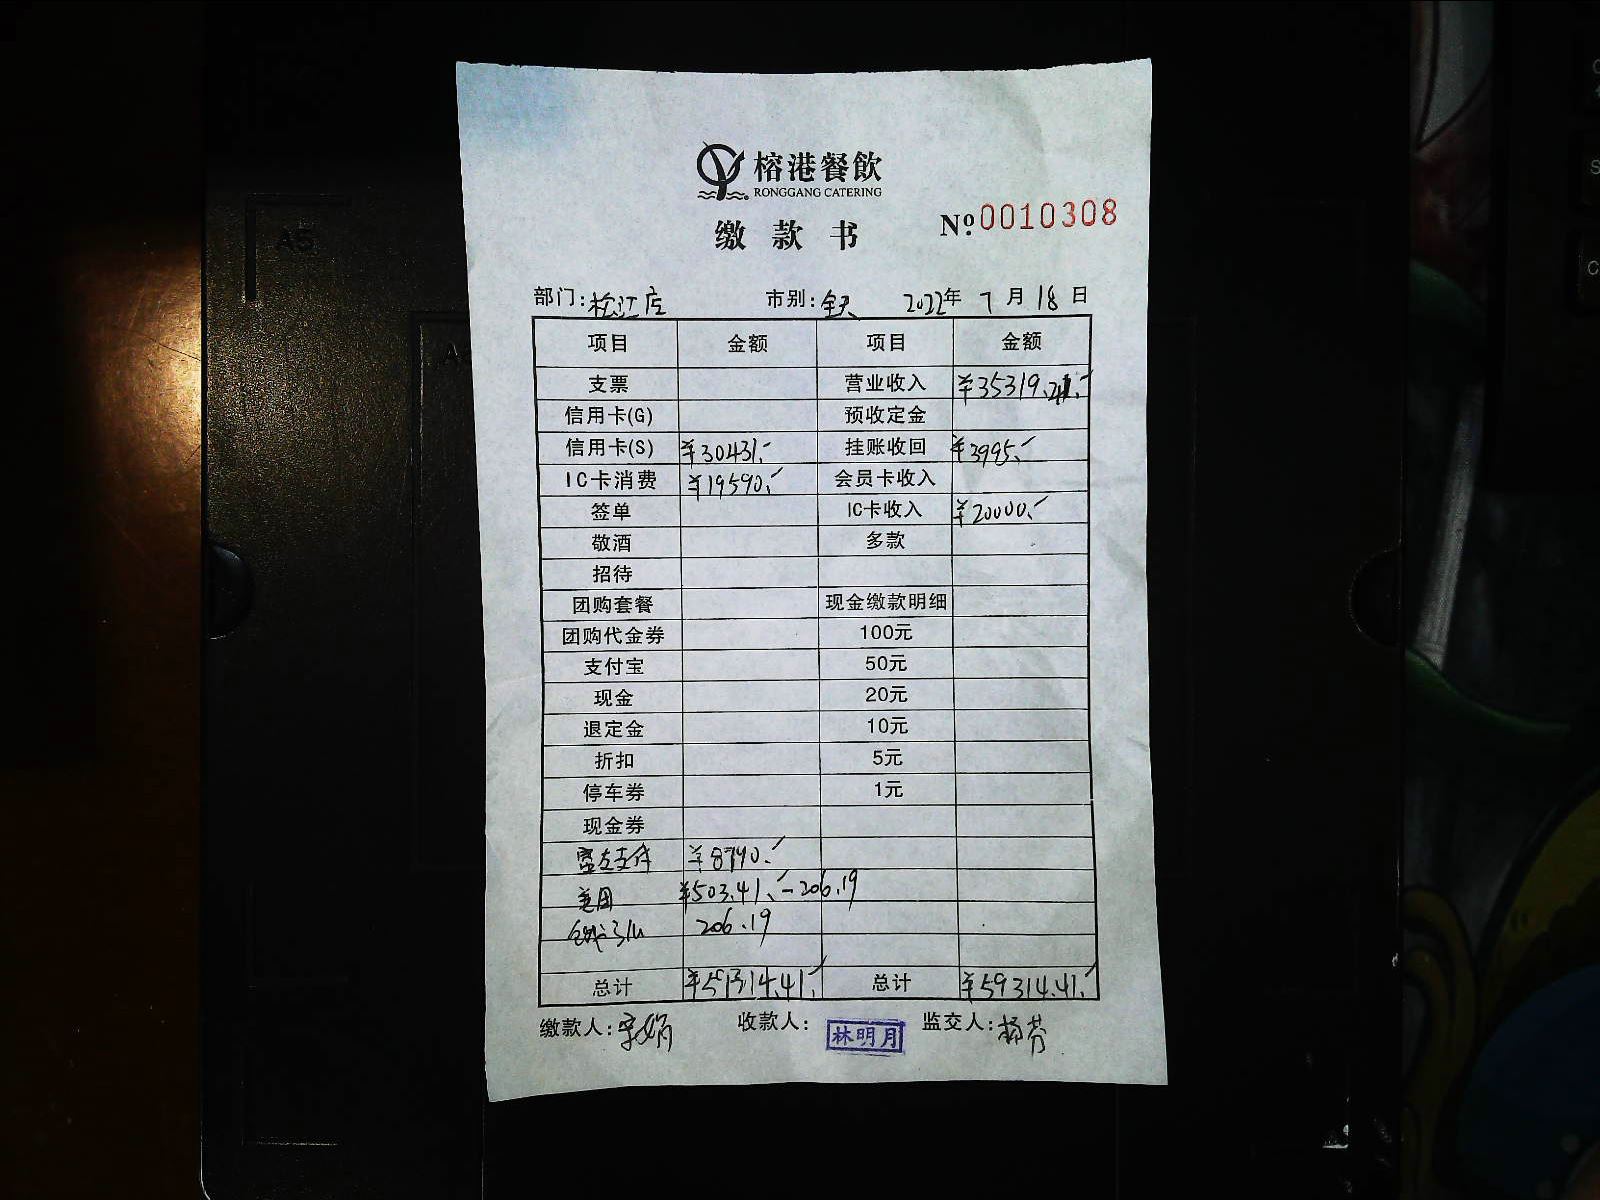 榕港餐飲
RONGGANG CATERING
缴款书
№ 0010308
部门: 松江店 市别: 全天 2022年 7月 18日
项目 金额 项目 金额
支票 营业收入
信用卡(G) 预收定金
信用卡(S) ¥30431.- 挂账收回 ¥3995.-
IC卡消费 ¥19590.- 会员卡收入
签单 IC卡收入 ¥20000.-
敬酒 多款
招待
团购套餐 现金缴款明细
团购代金券 100元
支付宝 50元
现金 20元
退定金 10元
折扣 5元
停车券 1元
现金券
支付 ¥8790.-
美团 ¥503.41.- -206.19
206.19
总计 ¥59314.41.- 总计 ¥59314.41.-
缴款人: 收款人: 林明月 监交人: 杨芬
A5